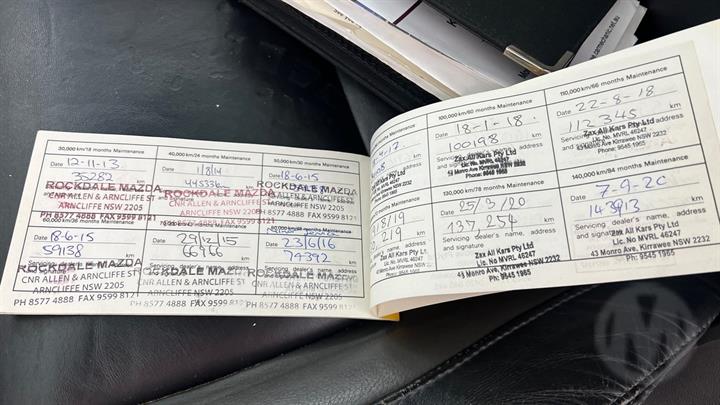 30,000 km/18 months Maintenance
Date 12-11-13
35282 km
ROCKDALE MAZDA
CNR ALLEN & ARNCLIFFE ST
ARNCLIFFE NSW 2205
PH 8577 4888 FAX 9599 8121
40,000 km/24 months Maintenance
Date 1/8/14
km
ROCKDALE MAZDA
CNR ALLEN & ARNCLIFFE ST
ARNCLIFFE NSW 2205
PH 8577 4888 FAX 9599 8121
50,000 km/30 months Maintenance
Date 18-6-15
km
ROCKDALE MAZDA
CNR ALLEN & ARNCLIFFE ST
ARNCLIFFE NSW 2205
PH 8577 4888 FAX 9599 8121
60,000 km/36 months Maintenance
Date 18-6-15
59138 km
ROCKDALE MAZDA
CNR ALLEN & ARNCLIFFE ST
ARNCLIFFE NSW 2205
PH 8577 4888 FAX 9599 8121
Date 29/12/15
66966 km
ROCKDALE MAZDA
CNR ALLEN & ARNCLIFFE ST
ARNCLIFFE NSW 2205
PH 8577 4888 FAX 9599 8121
Date 23/6/16
74392 km
ROCKDALE MAZDA
CNR ALLEN & ARNCLIFFE ST
ARNCLIFFE NSW 2205
PH 8577 4888 FAX 9599 8121
100,000 km/60 months Maintenance
Date 18-1-18
100198 km
Servicing address
Zax All Kars Pty Ltd
Lic. No MVRL 46247
43 Monro Ave Kirrawee NSW 2232
Phone: 9545 1965
110,000 km/66 months Maintenance
Date 22-8-18
112345 km
Servicing address
Zax All Kars Pty Ltd
Lic. No MVRL 46247
43 Monro Ave Kirrawee NSW 2232
Phone: 9545 1965
130,000 km/78 months Maintenance
Date 25/3/20
137 254 km
Servicing dealer's name, address
and signature
Zax All Kars Pty Ltd
Lic. No MVRL 46247
43 Monro Ave, Kirrawee NSW 2232
Ph: 9545 1965
140,000 km/84 months Maintenance
Date 7-9-20
143913 km
Servicing dealer's name, address
and signature
Zax All Kars Pty Ltd
Lic. No MVRL 46247
43 Monro Ave, Kirrawee NSW 2232
Ph: 9545 1965